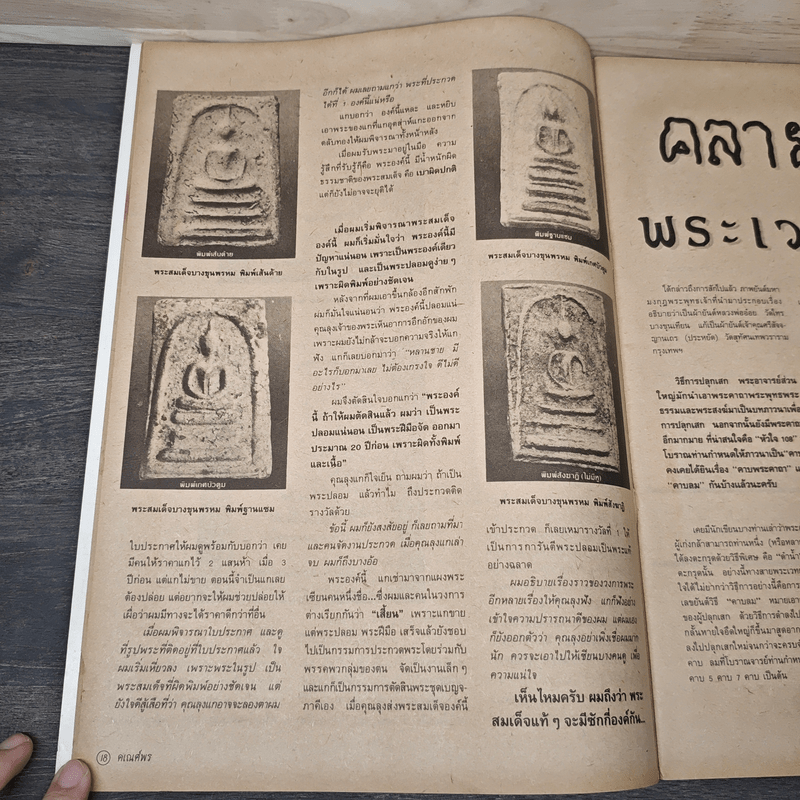 พิมพ์เส้นด้าย
พระสมเด็จบางขุนพรหม พิมพ์เส้นด้าย
พิมพ์เกศบัวตูม
พระสมเด็จบางขุนพรหม พิมพ์ฐานแซม
ใบประกาศให้ผมดูพร้อมกับบอกว่า เคย
มีคนให้ราคาแกไว้ 2 แสนห้า เมื่อ 3
ปีก่อน แต่แกไม่ขาย ตอนนี้จำเป็นแกเลย
ต้องปล่อย แต่อยากจะให้ผมช่วยปล่อยให้
เผื่อว่าผมมีทางจะได้ราคาดีกว่าที่อื่น
เมื่อผมพิจารณาใบประกาศ และดู
ที่รูปพระที่ติดอยู่ที่ใบประกาศแล้ว ใจ
ผมเริ่มเหี่ยวลง เพราะพระในรูป เป็น
พระสมเด็จที่ผิดพิมพ์อย่างชัดเจน แต่
ยังใจดีสู้เสือที่ว่า คุณลุงแกอาจจะลองตาผม
18 คเณศ์พร
อีกก็ได้ ผมเลยถามแกว่า พระที่ประกวด
ได้ที่ 1 องค์นี้แน่หรือ
แกบอกว่า องค์นี้แหละ และหยิบ
เอาพระของแกที่แกอุตส่าห์แกะออกจาก
ตลับทองให้ผมพิจารณาทั้งหน้าหลัง
เมื่อผมรับพระมาอยู่ในมือ ความ
รู้สึกที่รับรู้ก็คือ พระองค์นี้ มีน้ำหนักผิด
ธรรมชาติของพระสมเด็จ คือ เบาผิดปกติ
แต่ก็ยังไม่อาจจะยุติได้
เมื่อผมเริ่มพิจารณาพระสมเด็จ
องค์นี้ ผมก็เริ่มมั่นใจว่า พระองค์นี้มี
ปัญหาแน่นอน เพราะเป็นพระองค์เดียว
กับในรูป และเป็นพระปลอมดูง่าย ๆ
เพราะผิดพิมพ์อย่างชัดเจน
หลังจากที่ผมเอาขึ้นกล้องอีกสักพัก
ผมก็มั่นใจแน่นอนว่า พระองค์นี้ปลอมแน่
คุณลุงเจ้าของพระเห็นอาการอึกอักของผม
เพราะผมยังไม่กล้าจะบอกความจริงให้แก
ฟัง แกก็เลยบอกมาว่า "หลานชาย มี
อะไรก็บอกมาเลย ไม่ต้องเกรงใจ ดีไม่ดี
อย่างไร"
ผมจึงตัดสินใจบอกแกว่า "พระองค์
นี้ ถ้าให้ผมตัดสินแล้ว ผมว่า เป็นพระ
ปลอมแน่นอน เป็นพระฝีมือจัด ออกมา
ประมาณ 20 ปีก่อน เพราะผิดทั้งพิมพ์
และเนื้อ"
คุณลุงแกก็ใจเย็น ถามผมว่า ถ้าเป็น
พระปลอม แล้วทำไม ถึงประกวดติด
รางวัลด้วย
ข้อนี้ ผมก็ยังสงสัยอยู่ ก็เลยถามที่มา
และคนจัดงานประกวด เมื่อคุณลุงแกเล่า
จบ ผมก็ถึงบางอ้อ
พระองค์นี้ แกเช่ามาจากแผงพระ
เซียนคนหนึ่งชื่อ...ซึ่งผมและคนในวงการ
ต่างเรียกกันว่า "เสี้ยน" เพราะแกขาย
แต่พระปลอม พระฝีมือ เสร็จแล้วยังชอบ
ไปเป็นกรรมการประกวดพระโดยร่วมกับ
พรรคพวกลุ่มของตน จัดเป็นงานเล็ก ๆ
และแกก็เป็นกรรมการตัดสินพระชุดเบญจ-
ภาคีเอง เมื่อคุณลุงส่งพระสมเด็จองค์นี้
พิมพ์ฐานแซม
พระสมเด็จบางขุนพรหม พิมพ์เกศบัวตูม
พิมพ์สังฆาฏิ (ไม่มีหู)
พระสมเด็จบางขุนพรหม พิมพ์สังฆาฏิ
เข้าประกวด ก็เลยเหมารางวัลที่ 1 ให้
เป็นการการันตีพระปลอมเป็นพระแท้
อย่างฉลาด
ผมอธิบายเรื่องราวของวงการพระ
อีกหลายเรื่องให้คุณลุงฟัง แกก็ฟังอย่าง
เข้าใจความปรารถนาดีของผม แต่ผมเอง
ก็ยังออกตัวว่า คุณลุงอย่าเพิ่งเชื่อผมมาก
นัก ควรจะเอาไปให้เซียนบางคนดู เพื่อ
ความแน่ใจ
เห็นไหมครับ ผมถึงว่า พระ
สมเด็จแท้ ๆ จะมีซักกี่องค์กัน...
คลาย
พระเว
ได้กล่าวถึงการสักไปแล้ว ภาพยันต์มหา
มงกุฎพระพุทธเจ้าที่นำมาประกอบเรื่อง
อธิบายว่าเป็นผ้ายันต์หลวงพ่ออ๋อย วัดไทร
บางขุนเทียน แก้เป็นผ้ายันต์เจ้าคุณศรีสัจจ-
ญาณเถร (ประหยัด) วัดสุทัศนเทพวราราม
กรุงเทพฯ
วิธีการปลุกเสก พระอาจารย์ส่วน
ใหญ่มักนำเอาพระคาถาพระพุทธพระ
ธรรมและพระสงฆ์มาเป็นบทภาวนาเพื่อ
การปลุกเสก นอกจากนั้นยังมีพระคาถา
อีกมากมาย ที่น่าสนใจคือ "หัวใจ 108"
โบราณท่านกำหนดให้ภาวนาเป็น "คาบ
คงเคยได้ยินเรื่อง "คาบพระคาถา" แ
"คาบลม" กันบ้างแล้วนะครับ
เคยมีนักเขียนบางท่านเล่าว่าพระ
ผู้เก่งกล้าสามารถท่านหนึ่ง (หรือหลาย
ได้ลงตะกรุดด้วยวิธีพิเศษ คือ "ดำน้ำ
ตะกรุดนั้น อย่างนี้ทางสายพระเวท
ใจได้ไม่ยากกว่าวิธีการอย่างนี้คือการ
เลขยันต์วิธี "คาบลม" หมายเอา
ของผู้ปลุกเสก ด้วยวิธีการดำลงไป
กลั้นหายใจอึดใหญ่ก็ขึ้นมาสูดอาก
ลงไปปลุกเสกใหม่จนกว่าจะครบจำ
คาบ ลมที่โบราณจารย์ท่านกำห
คาบ 5 คาบ 7 คาบ เป็นต้น